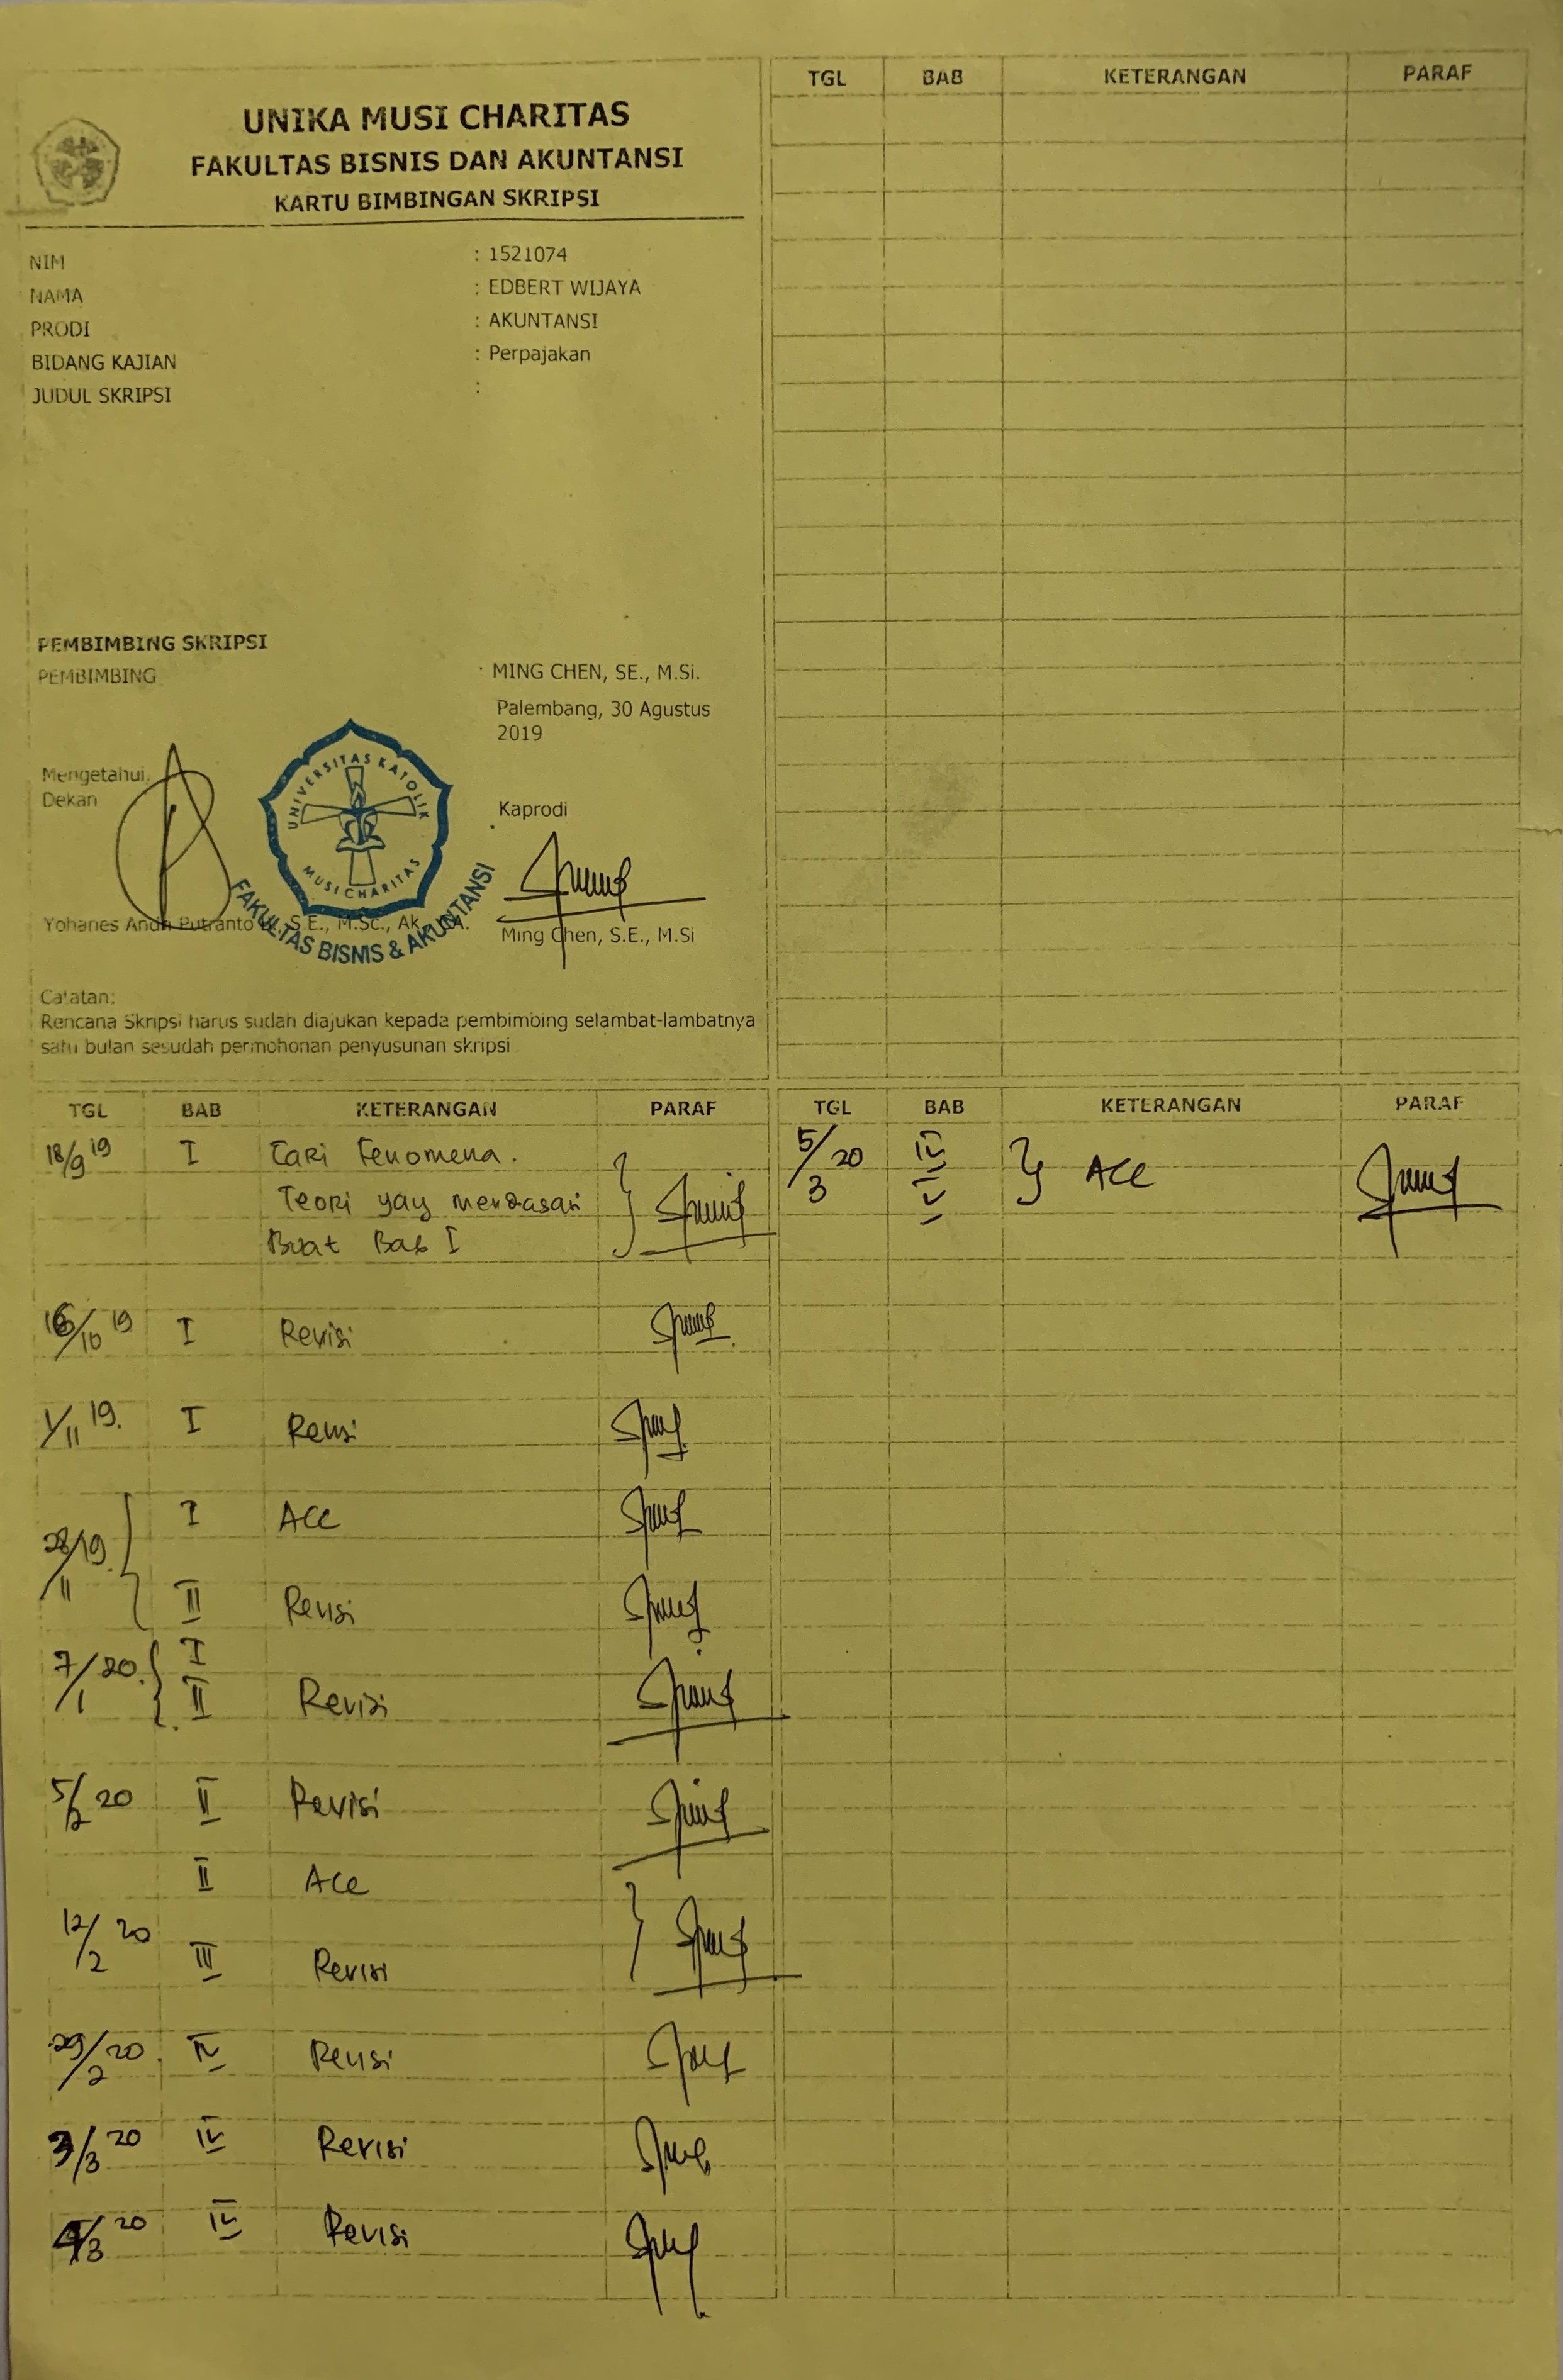 UNIKA MUSI CHARITAS
FAKULTAS BISNIS DAN AKUNTANSI
KARTU BIMBINGAN SKRIPSI
NIM : 1521074
NAMA : EDBERT WIJAYA
PRODI : AKUNTANSI
BIDANG KAJIAN : Perpajakan
JUDUL SKRIPSI :
PEMBIMBING SKRIPSI
PEMBIMBING MING CHEN, SE., M.Si.
Palembang, 30 Agustus
2019
Mengetahui,
Dekan
Kaprodi
UNIVERSITAS KATOLIK
MUSI CHARITAS
FAKULTAS BISNIS & AKUNTANSI
Yohanes Andri Putranto S.E., M.Sc., Ak.
Ming Chen, S.E., M.Si
Catatan:
Rencana Skripsi harus sudah diajukan kepada pembimbing selambat-lambatnya
satu bulan sesudah permohonan penyusunan skripsi
TGL BAB KETERANGAN PARAF
18/9 19 I Cari Fenomena.
Teori yang mendasari
Buat Bab I
16/10 19 I Revisi
1/11 19. I Revisi
28/11 19. I ACC
II Revisi
7/1 20. I
II Revisi
5/2 20 II Revisi
II Acc
12/2 20 III Revisi
29/2 20. IV Revisi
3/3 20 IV Revisi
4/3 20 IV Revisi
TGL BAB KETERANGAN PARAF
TGL BAB KETERANGAN PARAF
5/3 20 IV
V ACC